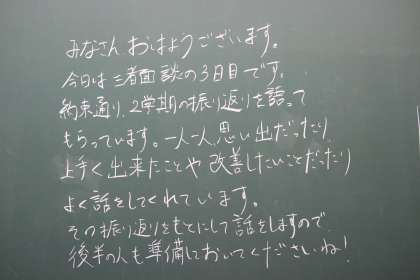 みなさん おはようございます。
今日は三者面談の3日目です。
約束通り、2学期の振り返りを話って
もらっています。一人一人思い出だったり
上手く出来たことや改善したいことだったり
よく話をしてくれています。
その振り返りをもとにして話をしますので
後半の人も準備しておいてくださいね！